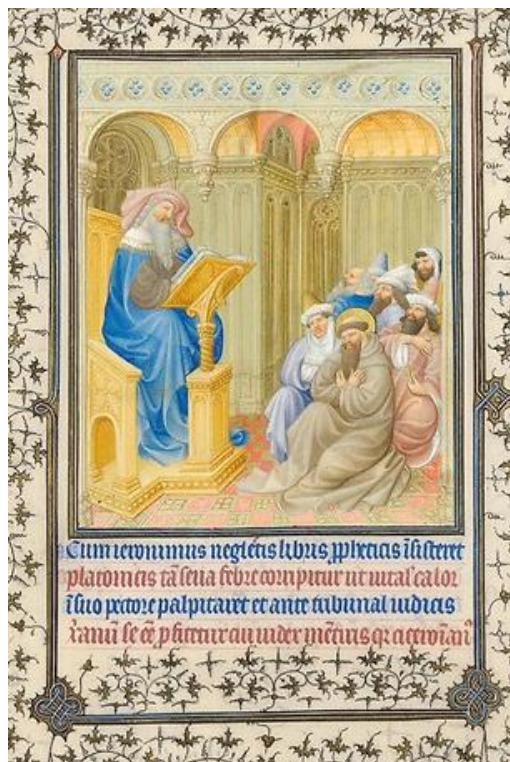 Cum ieronimus neglctis libris ꝓpheticis īsisteret
platonicis tā seua febre corripitur ut uital' calor
īsuo pectore palpitaret et ante tribunal iudicis
xanū se eē ꝓfitetur cui iudex mētiris qꝛ